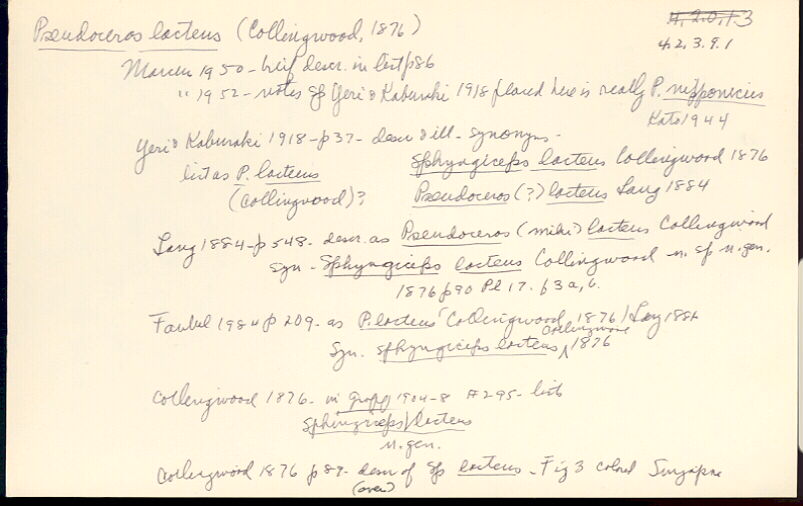 Pseudoceros lacteus (Collingwood, 1876)
4.2.0.13
4.2.3.9.1
Marcus 1950 - brief descr. in list p86
" 1952 - notes sp Yeri & Kaburaki 1918 placed here is really P. nipponicus
Kato 1944
Yeri & Kaburaki 1918 - p37 - descr & ill. - synonyms -
list as P. lacteus
(Collingwood)?
Sphyngiceps lacteus Collingwood 1876
Pseudoceros (?) lacteus Lang 1884
Lang 1884 - p 548 - descr. as Pseudoceros (mihi) lacteus Collingwood
syn - Sphyngiceps lacteus Collingwood n. sp n. gen.
1876 p90 Pl 17. f3a, b.
Faubel 1984 p 209 - as P. lacteus Collingwood, 1876 / Lang 1884
Syn. Sphyngiceps lacteus Collingwood 1876
Collingwood 1876 - in Graff 1904-8 #295 - lists
Sphyngiceps lacteus
n. gen.
Collingwood 1876 p 89 - descr of sp lacteus - Fig 3 colored Singapore
(over)